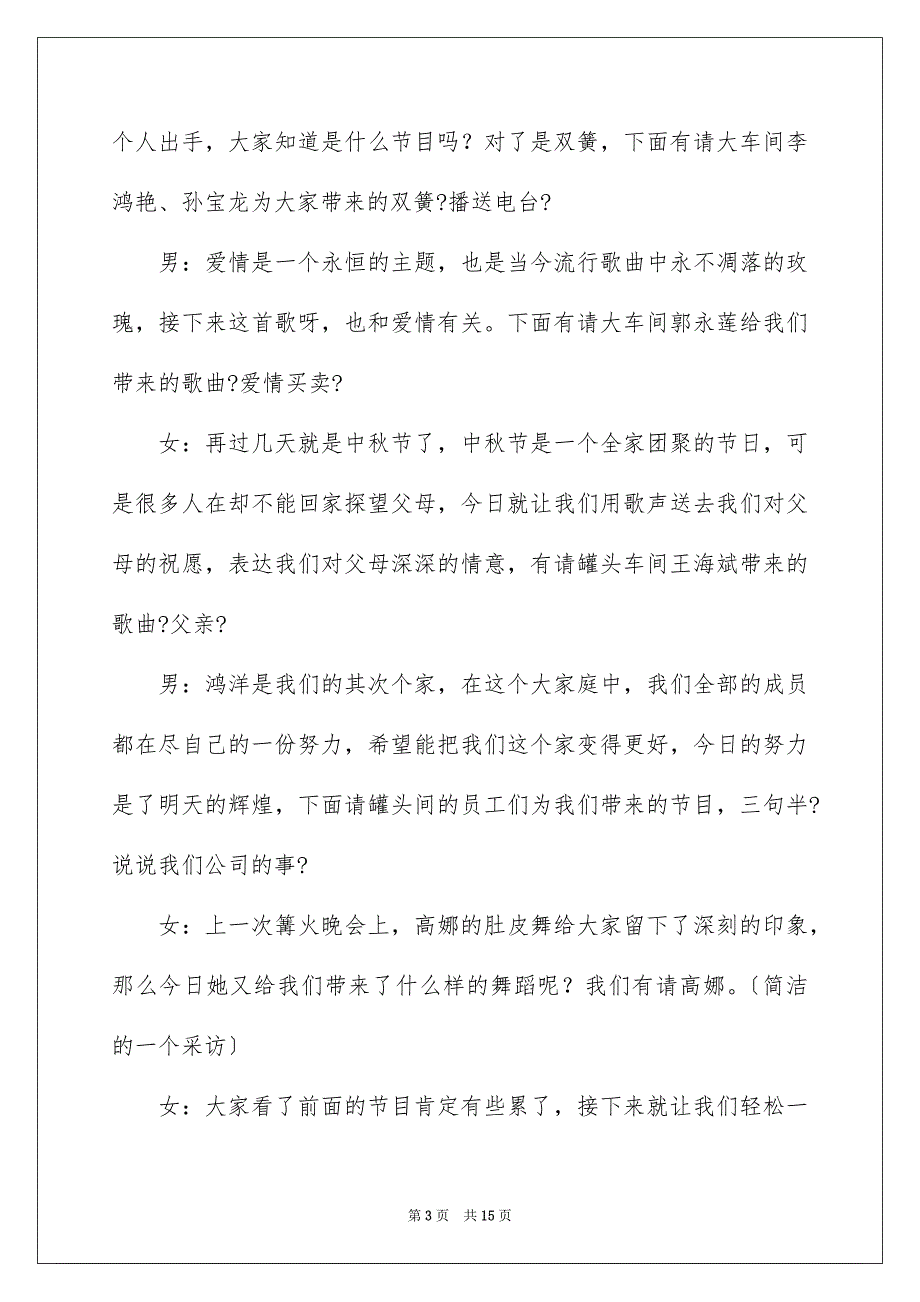 个人出手，大家知道是什么节目吗？对了是双簧，下面有请大车间李
鸿艳、孙宝龙为大家带来的双簧?播送电台?
男：爱情是一个永恒的主题，也是当今流行歌曲中永不凋落的玫
瑰，接下来这首歌呀，也和爱情有关。下面有请大车间郭永莲给我们
带来的歌曲?爱情买卖?
女：再过几天就是中秋节了，中秋节是一个全家团聚的节日，可
是很多人在却不能回家探望父母，今日就让我们用歌声送去我们对父
母的祝愿，表达我们对父母深深的情意，有请罐头车间王海斌带来的
歌曲?父亲?
男：鸿洋是我们的其次个家，在这个大家庭中，我们全部的成员
都在尽自己的一份努力，希望能把我们这个家变得更好，今日的努力
是了明天的辉煌，下面请罐头间的员工们为我们带来的节目，三句半?
说说我们公司的事?
女：上一次篝火晚会上，高娜的肚皮舞给大家留下了深刻的印象，
那么今日她又给我们带来了什么样的舞蹈呢？我们有请高娜。〔简洁
的一个采访〕
女：大家看了前面的节目肯定有些累了，接下来就让我们轻松一
第 3 页 共 15 页